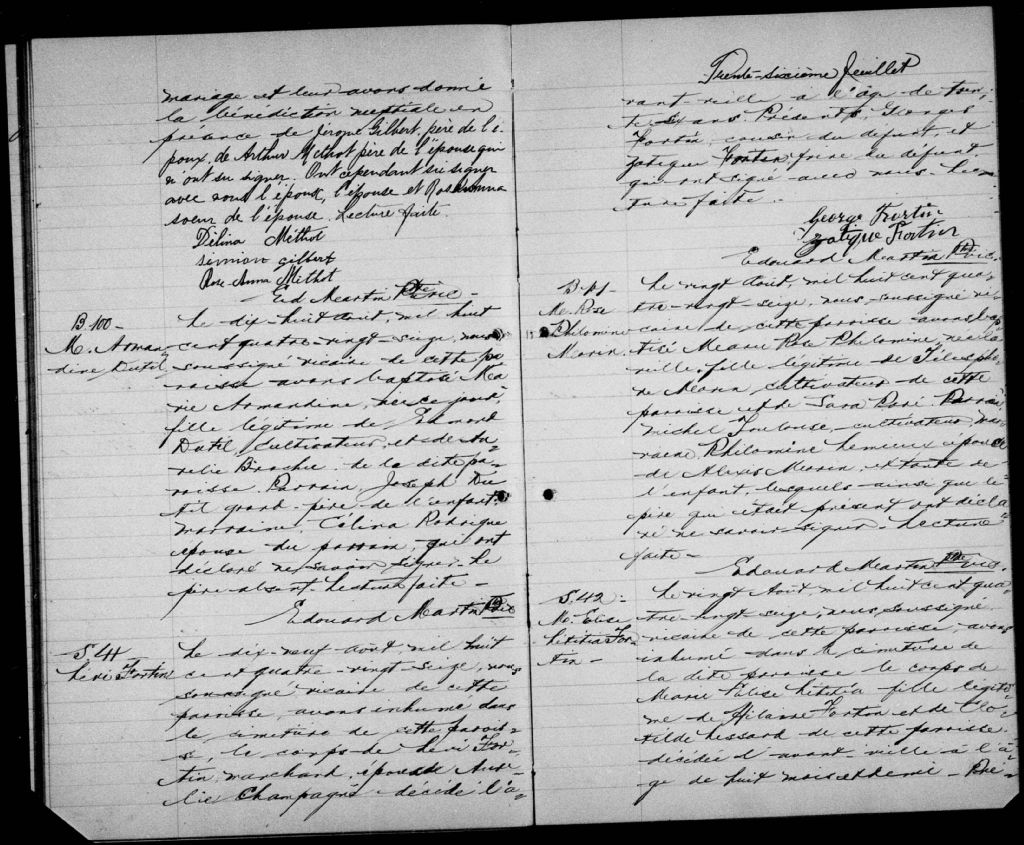 mariage et leur avons donné
la bénédiction nuptiale en
présence de Jérome Gilbert, père de l'é-
poux, de Arthur Methot père de l'épouse qui
n'ont su signer. Ont cependant su signer
avec nous l'époux, l'épouse et Rose Anna
soeur de l'épouse. Lecture faite.
Délina Méthot
simion gilbert
Rose Anna Méthot
Ed Martin Ptre Vic
B 100 -
M. Arman
dine Dutil
Le dix-huit Août, mil huit
cent quatre-vingt-seize, nous
soussigné vicaire de cette pa
roisse avons baptisé Ma
rie Armandine, née ce jour,
fille légitime de Edmond
Dutil, cultivateur, et de Au
relie Brochu de la dite pa-
roisse. Parrain, Joseph Du
til grand-père de l'enfant.
marraine, Célina Rodrigue
épouse du parrain, qui ont
déclaré ne savoir signer. Le
père absent. Lecture faite -
Edouard Martin Ptre Vic
S 41
Levi Fortin
Le dix-neuf Août, mil huit
cent quatre-vingt-seize, nous
soussigné vicaire de cette
paroisse, avons inhumé dans
le cimetière de cette parois-
se, le corps de Levi For-
tin, marchand, époux de Auré-
lie Champagne décédé l'a-
Trente-sixième feuillet
vant-veille à l'âge de tren-
te ans. Présents, Georges
Fortin, cousin du défunt, et
Zotique Fortin, frère du défunt
qui ont signé avec nous. Lec-
ture faite.
George Fortin
Zotique Fortier
Edouard Martin Ptre Vic.
B 101
M. Rose
Philomine
Morin.
Le vingt Août, mil huit cent qua-
tre-vingt seize, nous, soussigné vi-
caire de cette paroisse avons bap-
tisé Marie Rose Philomine, née la
veille, fille légitime de Télespho-
re Morin, cultivateur de cette
paroisse et de Sara Paré Parrain,
Michel Toulouse, cultivateur mar-
raine, Philomine Lemieux épouse
de Alexis Morin, et tante de
l'enfant, lesquels ainsi que le
père qui était présent ont décla-
ré ne savoir signer. Lecture
faite -
Edouard Martin Ptre Vic.
S. 42 -
M. Elise
Létitia For-
tin -
Le vingt Août, mil huit cent qua
tre-vingt seize, nous, soussigné,
vicaire de cette paroisse, avons
inhumé dans le cimetière de
la dite paroisse le corps de
Marie Elise Létitia fille légiti-
me de Hilaire Fortin et de Clo-
tilde Lessard de cette paroisse.
décédée l'avant-veille à l'â-
ge de huit mois et demi - Pré-